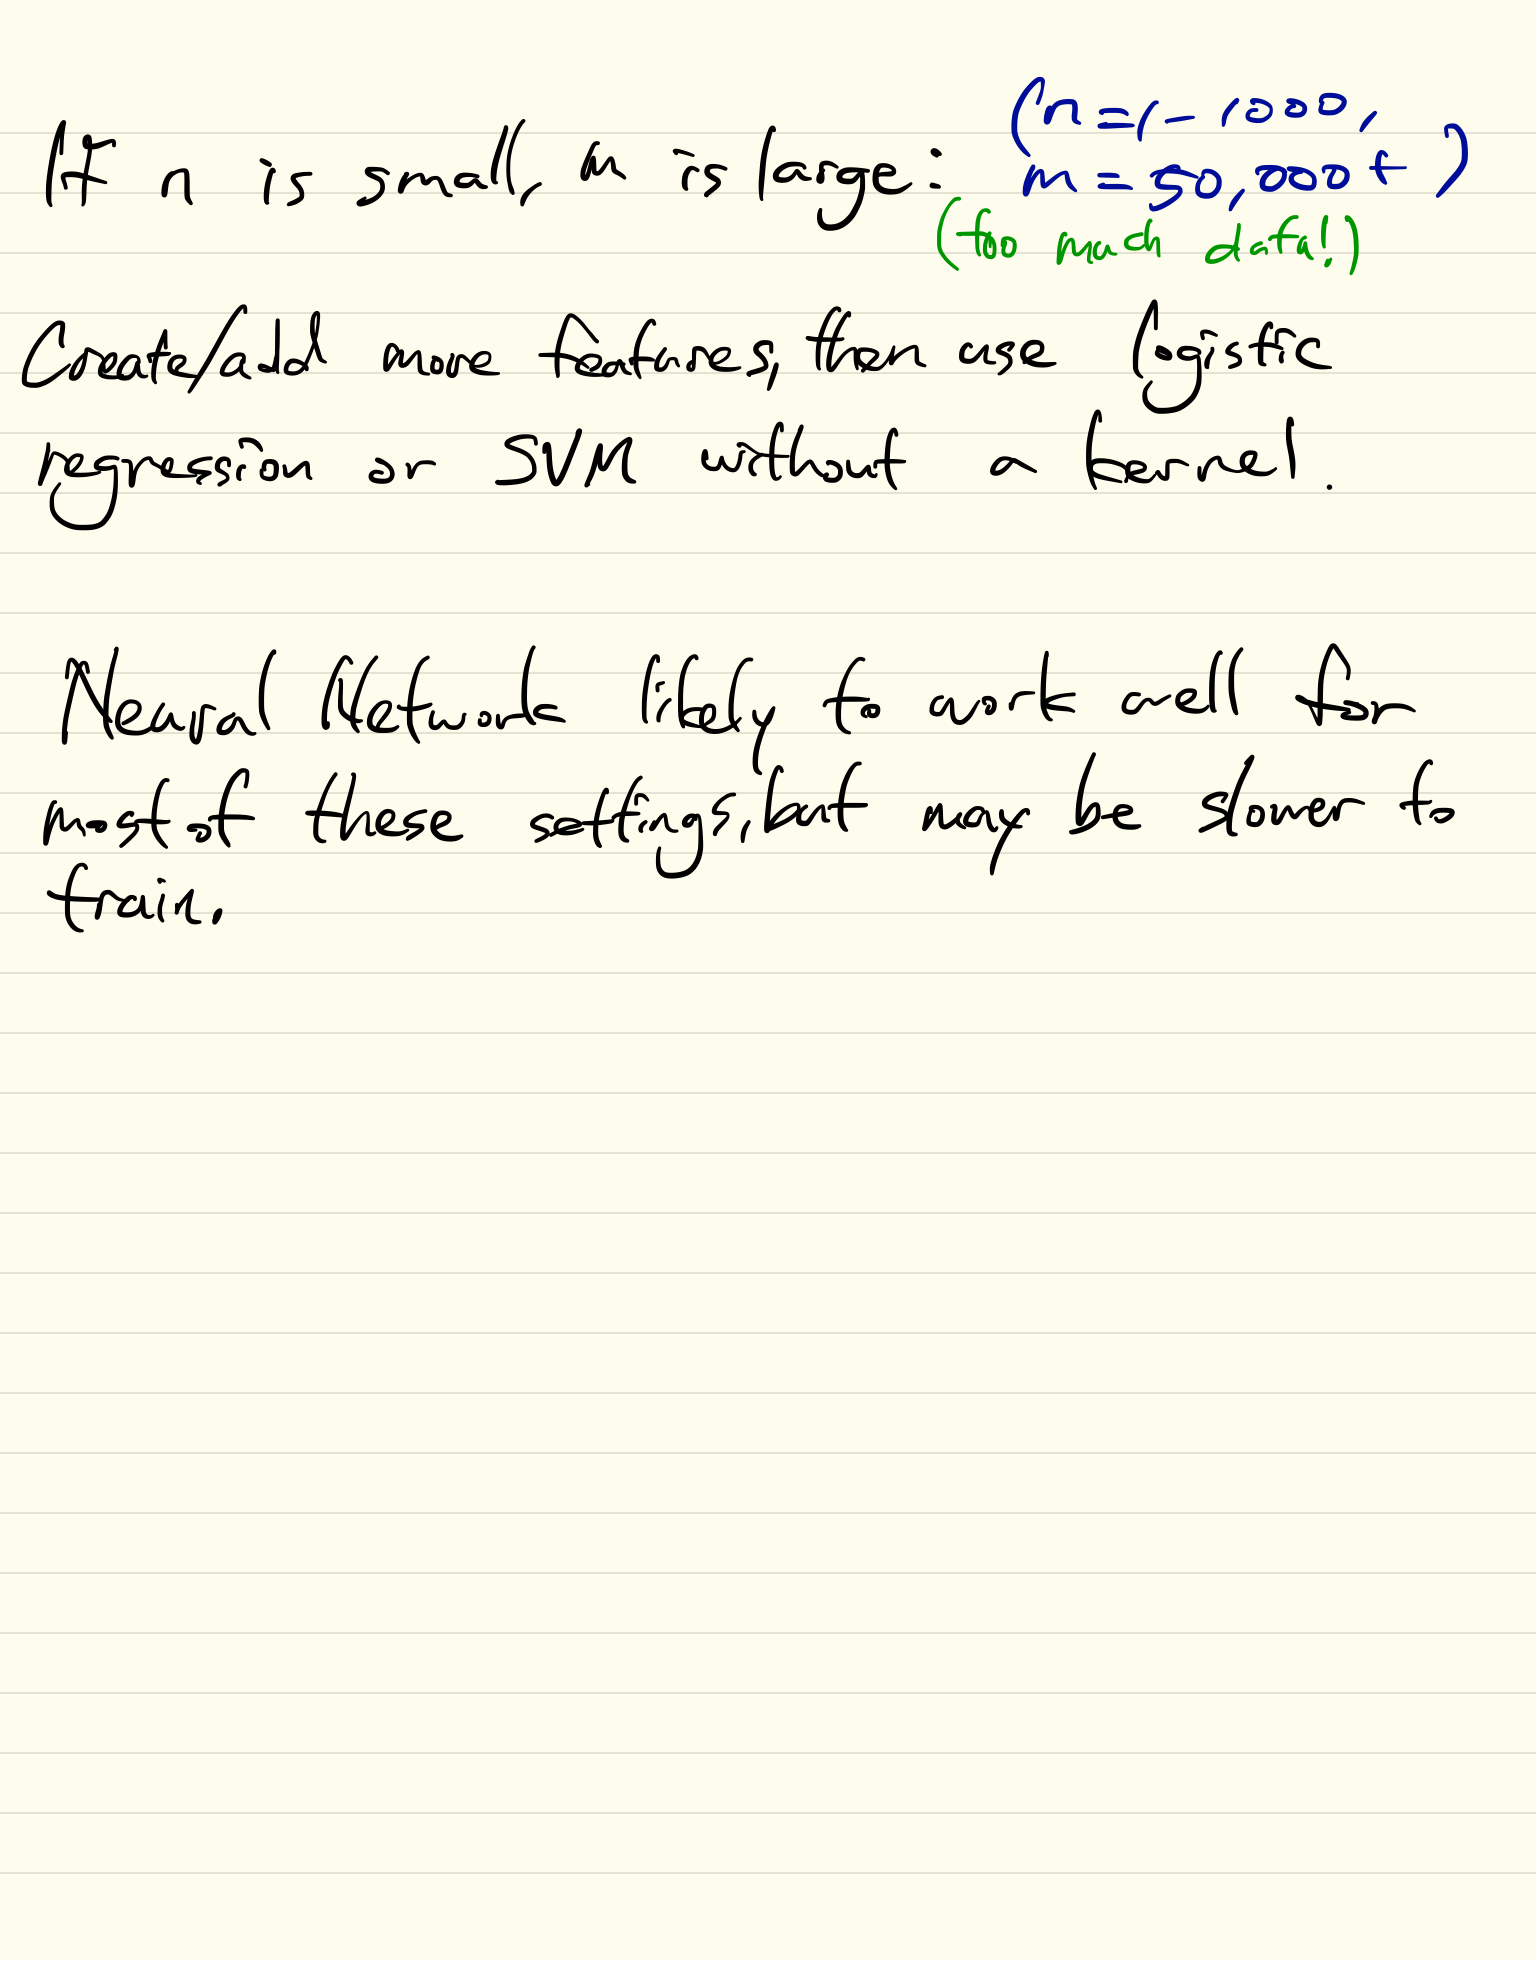 If n is small, m is large: (n = 1 - 1000,
m = 50,000 + )
(too much data!)
Create/add more features, then use logistic
regression or SVM without a kernel.
Neural Network likely to work well for
most of these settings, but may be slower to
train.